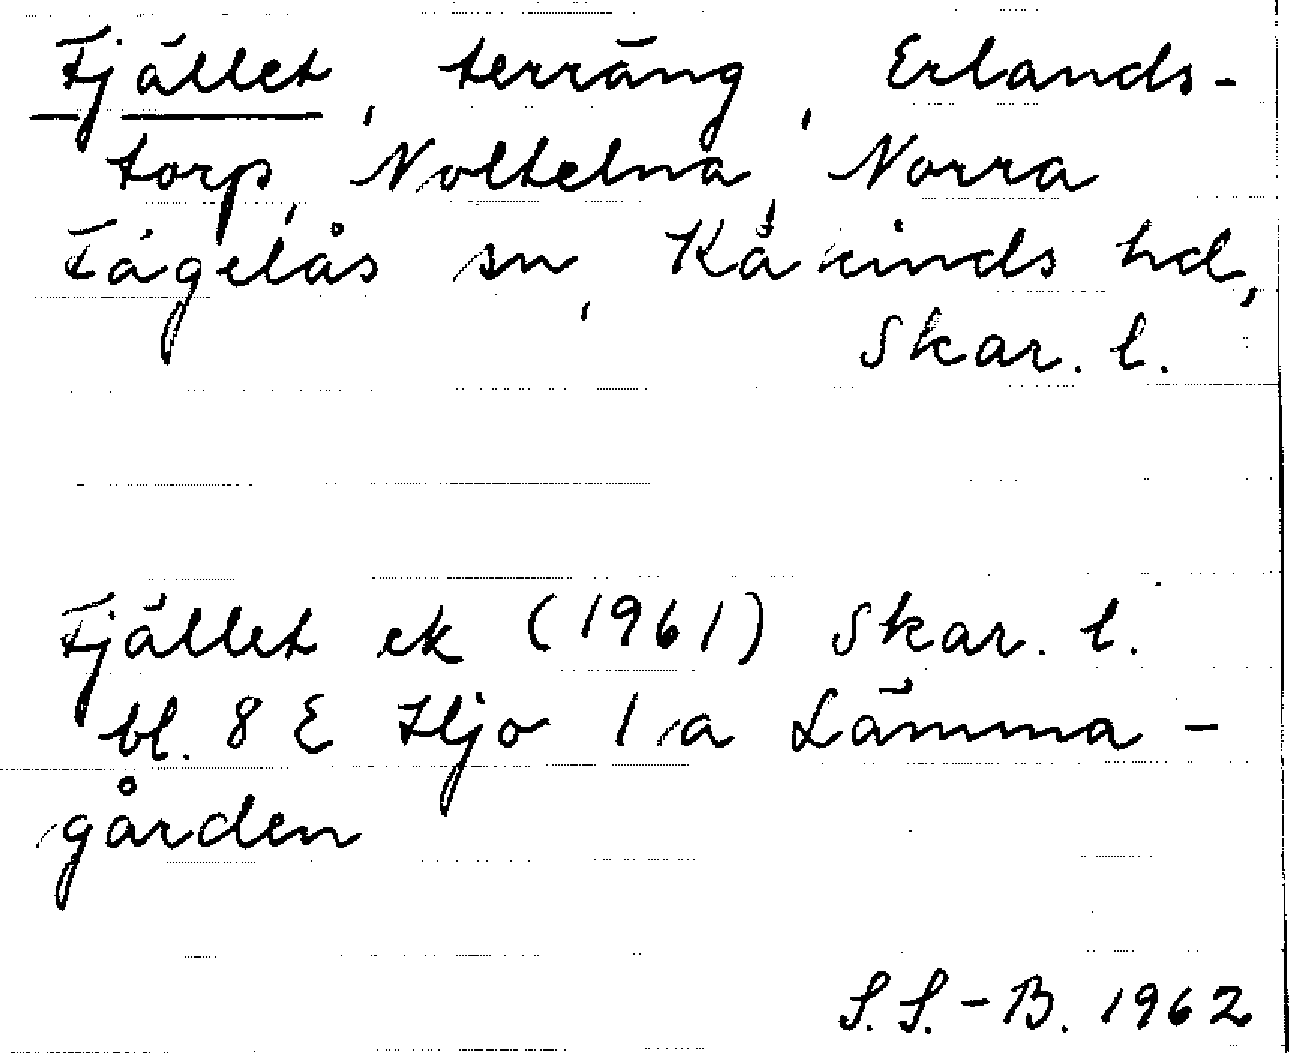 Fjället, terräng, Erlands-
torp, Noltelna, Norra
Fågelås sn, Kåkinds hd,
Skar. l.
Fjället ek (1961) Skar. l.
bl. 8 E Hjo 1 a Lämma-
gården
S. S.-B. 1962